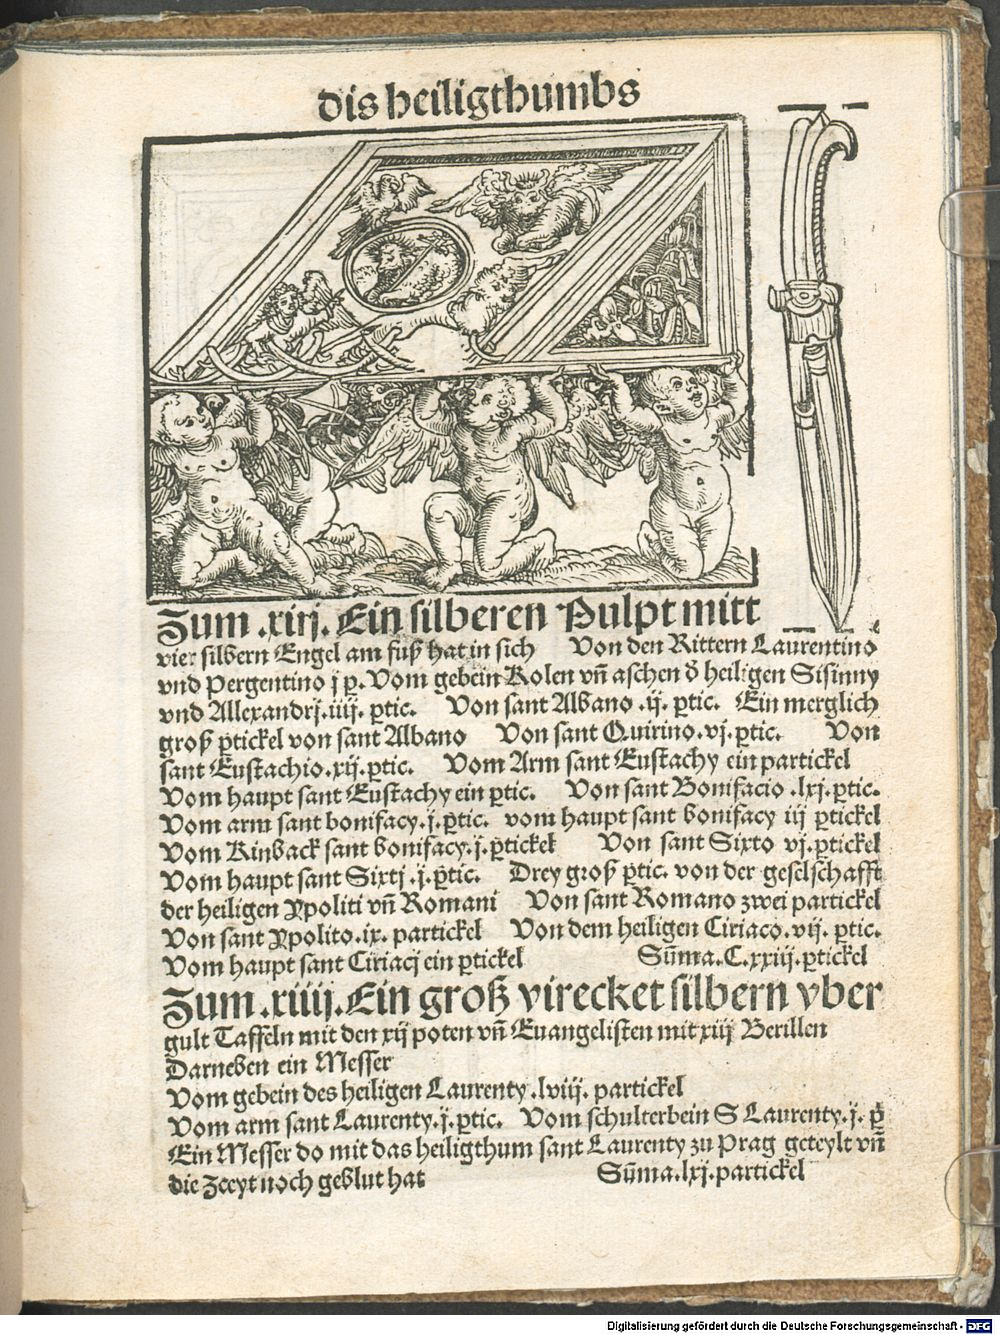 dis heiligthumbs
Zum .xirj. Ein silberen Pulpt mitt
vier silbern Engel am fuß hat in sich Von den Rittern Laurentino
vnd Pergentino j p̲. Vom gebein Kolen vñ aschen d̓ heiligen Sisinny
vnd Allexandrj. iiij. p̲tic. Von sant Albano .ij. p̲tic. Ein merglich
groß p̲tickel von sant Albano Von sant Quirino. vj. p̲tic. Von
sant Eustachio. xij. p̲tic. Vom Arm sant Eustachy ein partickel
Vom haupt sant Eustachy ein p̲tic. Von sant Bonifacio .lxj. p̲tic.
Vom arm sant bonifacy. j. p̲tic. vom haupt sant bonifacy iij p̲tickel
Vom Kinback sant bonifacy. j. p̲tickel Von sant Sixto vj. p̲tickel
Vom haupt sant Sixtj .j. p̲tic. Drey groß p̲tic. von der geselschafft
der heiligen Ypoliti vñ Romani Von sant Romano zwei partickel
Von sant Ypolito. ix. partickel Von dem heiligen Ciriaco. vij. ptic.
Vom haupt sant Ciriacj ein p̲tickel Sūma. C. xxiij. p̲tickel
Zum .xiiij. Ein groß virecket silbern vber
gult Taffeln mit den xij poten vñ Euangelisten mit xiij Berillen
Darneben ein Messer
Vom gebein des heiligen Laurenty .lviij. partickel
Vom arm sant Laurenty. j. ptic. Vom schulterbein S Laurenty. j. p̲
Ein Messer do mit das heiligthum sant Laurenty zu Prag geteylt vñ
die Zeeyt noch geblut hat Sūma. lxj. partickel
Digitalisierung gefördert durch die Deutsche Forschungsgemeinschaft - DFG